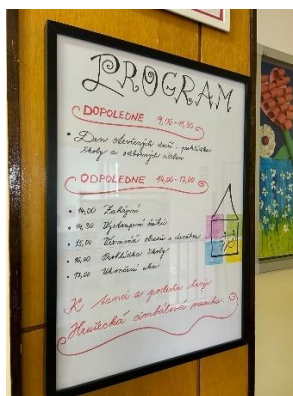 PROGRAM
DOPOLEDNE 9,00-11,30
• Den otevřených dveří - prohlídka
školy a odborných učeben
ODPOLEDNE 14,00-17,00
• 14,00 Zahájení
• 14,30 Vystoupení žáků
• 15,00 Vernisáž obrazů a
• 16,00 Prohlídka školy
• 17,00 Ukončení dne
K tanci a poslechu hraje
Hrušecká cimbálová muzika.